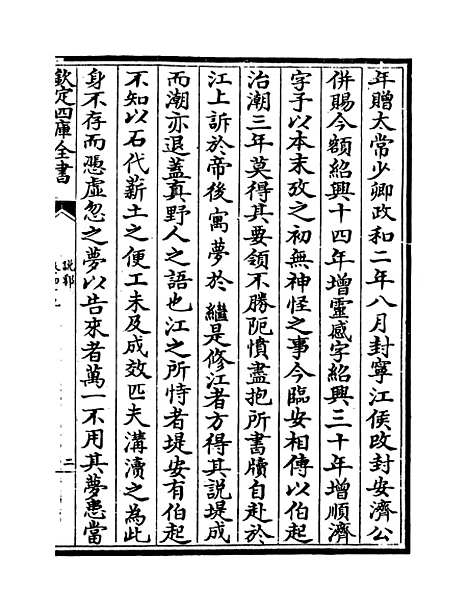 年贈太常少卿政和二年八月封寧江侯改封安濟公
併賜今額紹興十四年增靈感字紹興三十年增順濟
字予以本末攷之初無神怪之事今臨安相傳以伯起
治潮三年莫得其要領不勝阨憤盡抱所書牘自赴於
江上訴於帝後寓夢於 繼是修江者方得其說堤成
而潮亦退蓋真野人之語也江之所恃者堤安有伯起
不知以石代薪土之便工未及成效匹夫溝瀆之為此
身不存而憑虛忽之夢以告來者萬一不用其夢患當
欽定四庫全書
說郛
二